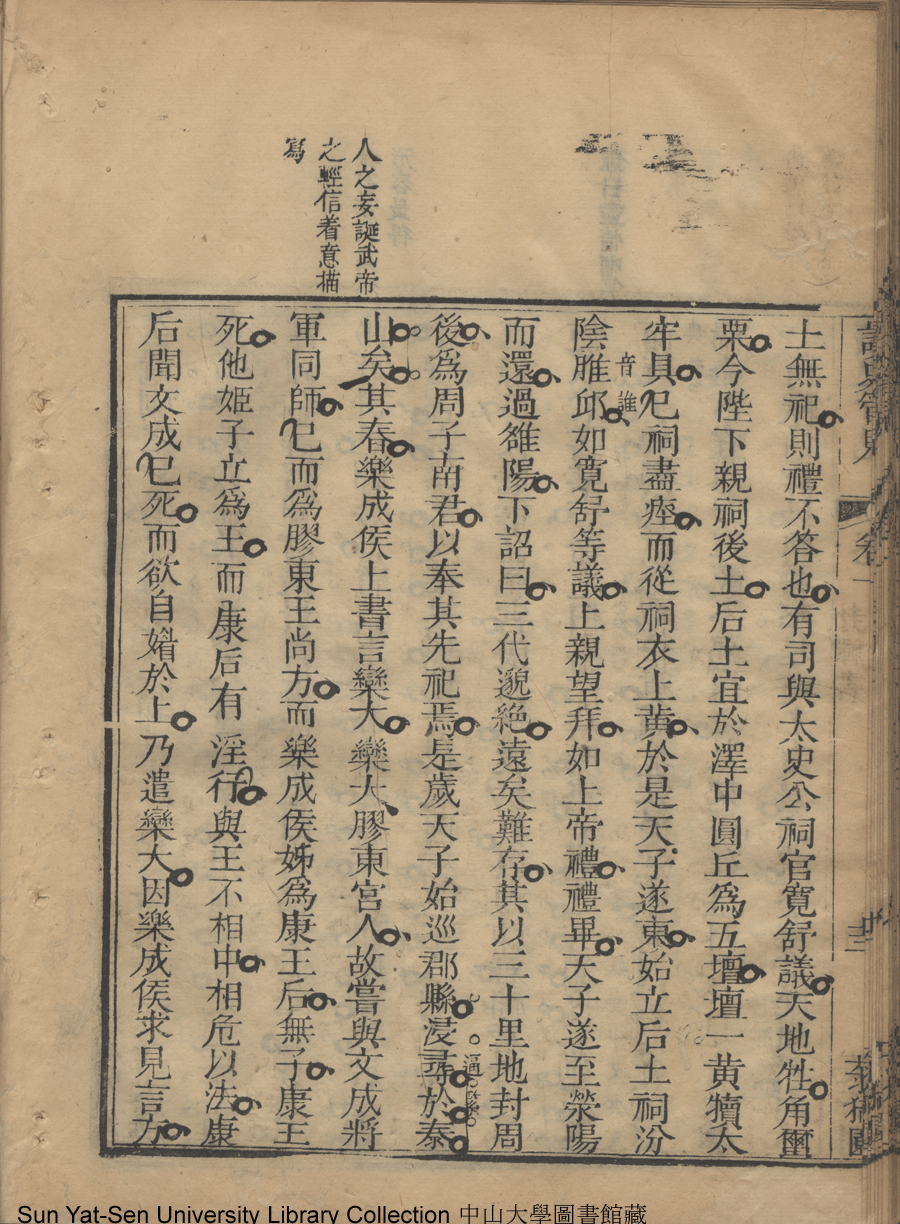 人之妄誕武帝
之輕信着意描
寫
土無祀則禮不答也有司與太史公祠官寬舒議天地牲角壐
栗今陛下親祠後土后土宜於澤中圓丘爲五壇壇一黃犢太
牢具已祠盡瘞而從祠衣上黃於是天子遂東始立后土祠汾
音誰
陰脽邱如寬舒等議上親望拜如上帝禮禮畢天子遂至滎陽
而還過雒陽下詔曰三代邈絕遠矣難存其以三十里地封周
後爲周子南君以奉其先祀焉是歲天子始巡郡縣浸尋於泰
山矣其春樂成侯上書言欒大欒大膠東宮人故嘗與文成將
軍同師已而爲膠東王尚方而樂成侯姊爲康王后無子康王
死他姬子立爲王而康后有淫行與王不相中相危以法康
后聞文成已死而欲自媚於上乃遣欒大因樂成侯求見言方
Sun Yat-Sen University Library Collection 中山大學圖書館藏